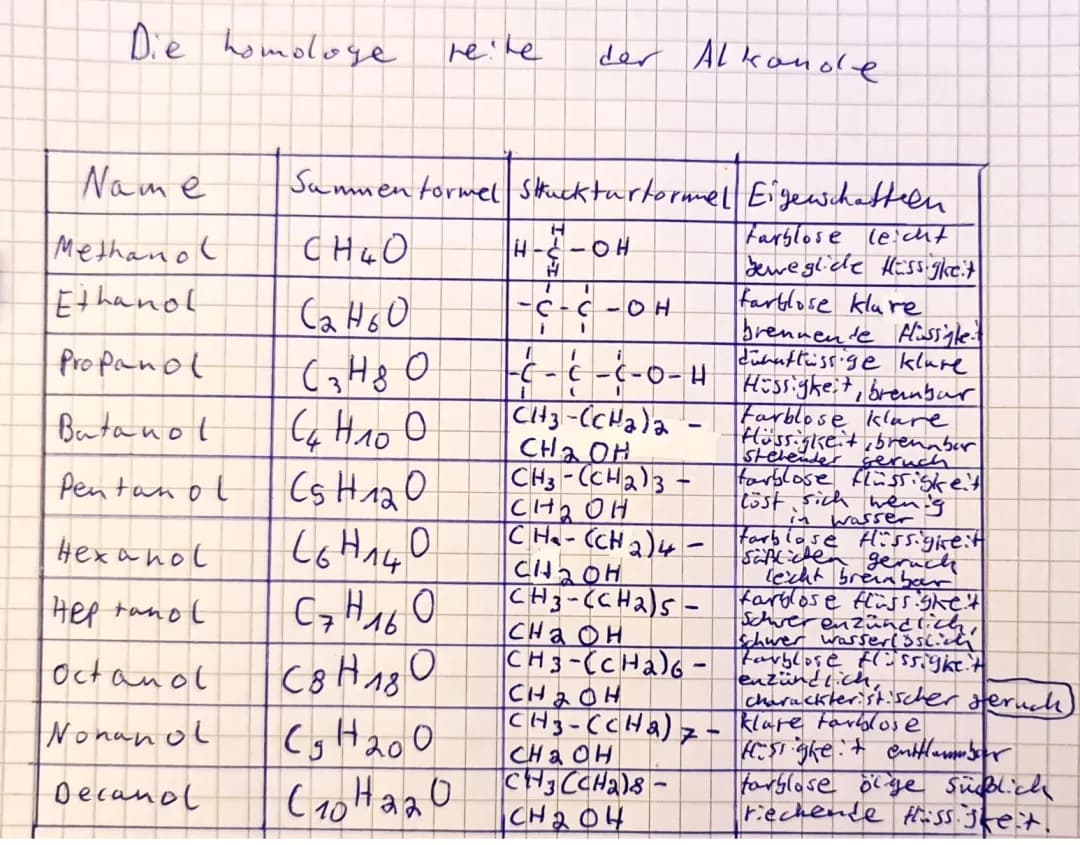 Die homologe reihe der Alkanole
Name Summenformel Strukturformel Eigenschaften
Methanol CH4O H-C-OH farblose leicht
H H bewegliche flüssigkeit
Ethanol C2H6O -C-C-OH farblose klare
brennende flüssigkeit
Propanol C3H8O -C-C-C-O-H dünnflüssige klare
flüssigkeit, brennbar
Butanol C4H10O CH3-(CH2)2- farblose klare
CH2OH flüssigkeit, brennbar
stechender geruch
Pentanol C5H12O CH3-(CH2)3- farblose flüssigkeit
CH2OH löst sich wenig
in wasser
Hexanol C6H14O CH3-(CH2)4- farblose flüssigkeit
CH2OH süßlichen geruch
leicht brennbar
Heptanol C7H16O CH3-(CH2)5- farblose flüssigkeit
CH2OH schwer enzündlich,
schwer wasserlöslich
Octanol C8H18O CH3-(CH2)6- farblose flüssigkeit
CH2OH enzündlich,
charackteristischer geruch
Nonanol C9H20O CH3-(CH2)7- klare farblose
CH2OH flüssigkeit entflammbar
Decanol C10H22O CH3(CH2)8- farblose ölige süßlich
CH2OH riechende flüssigkeit.